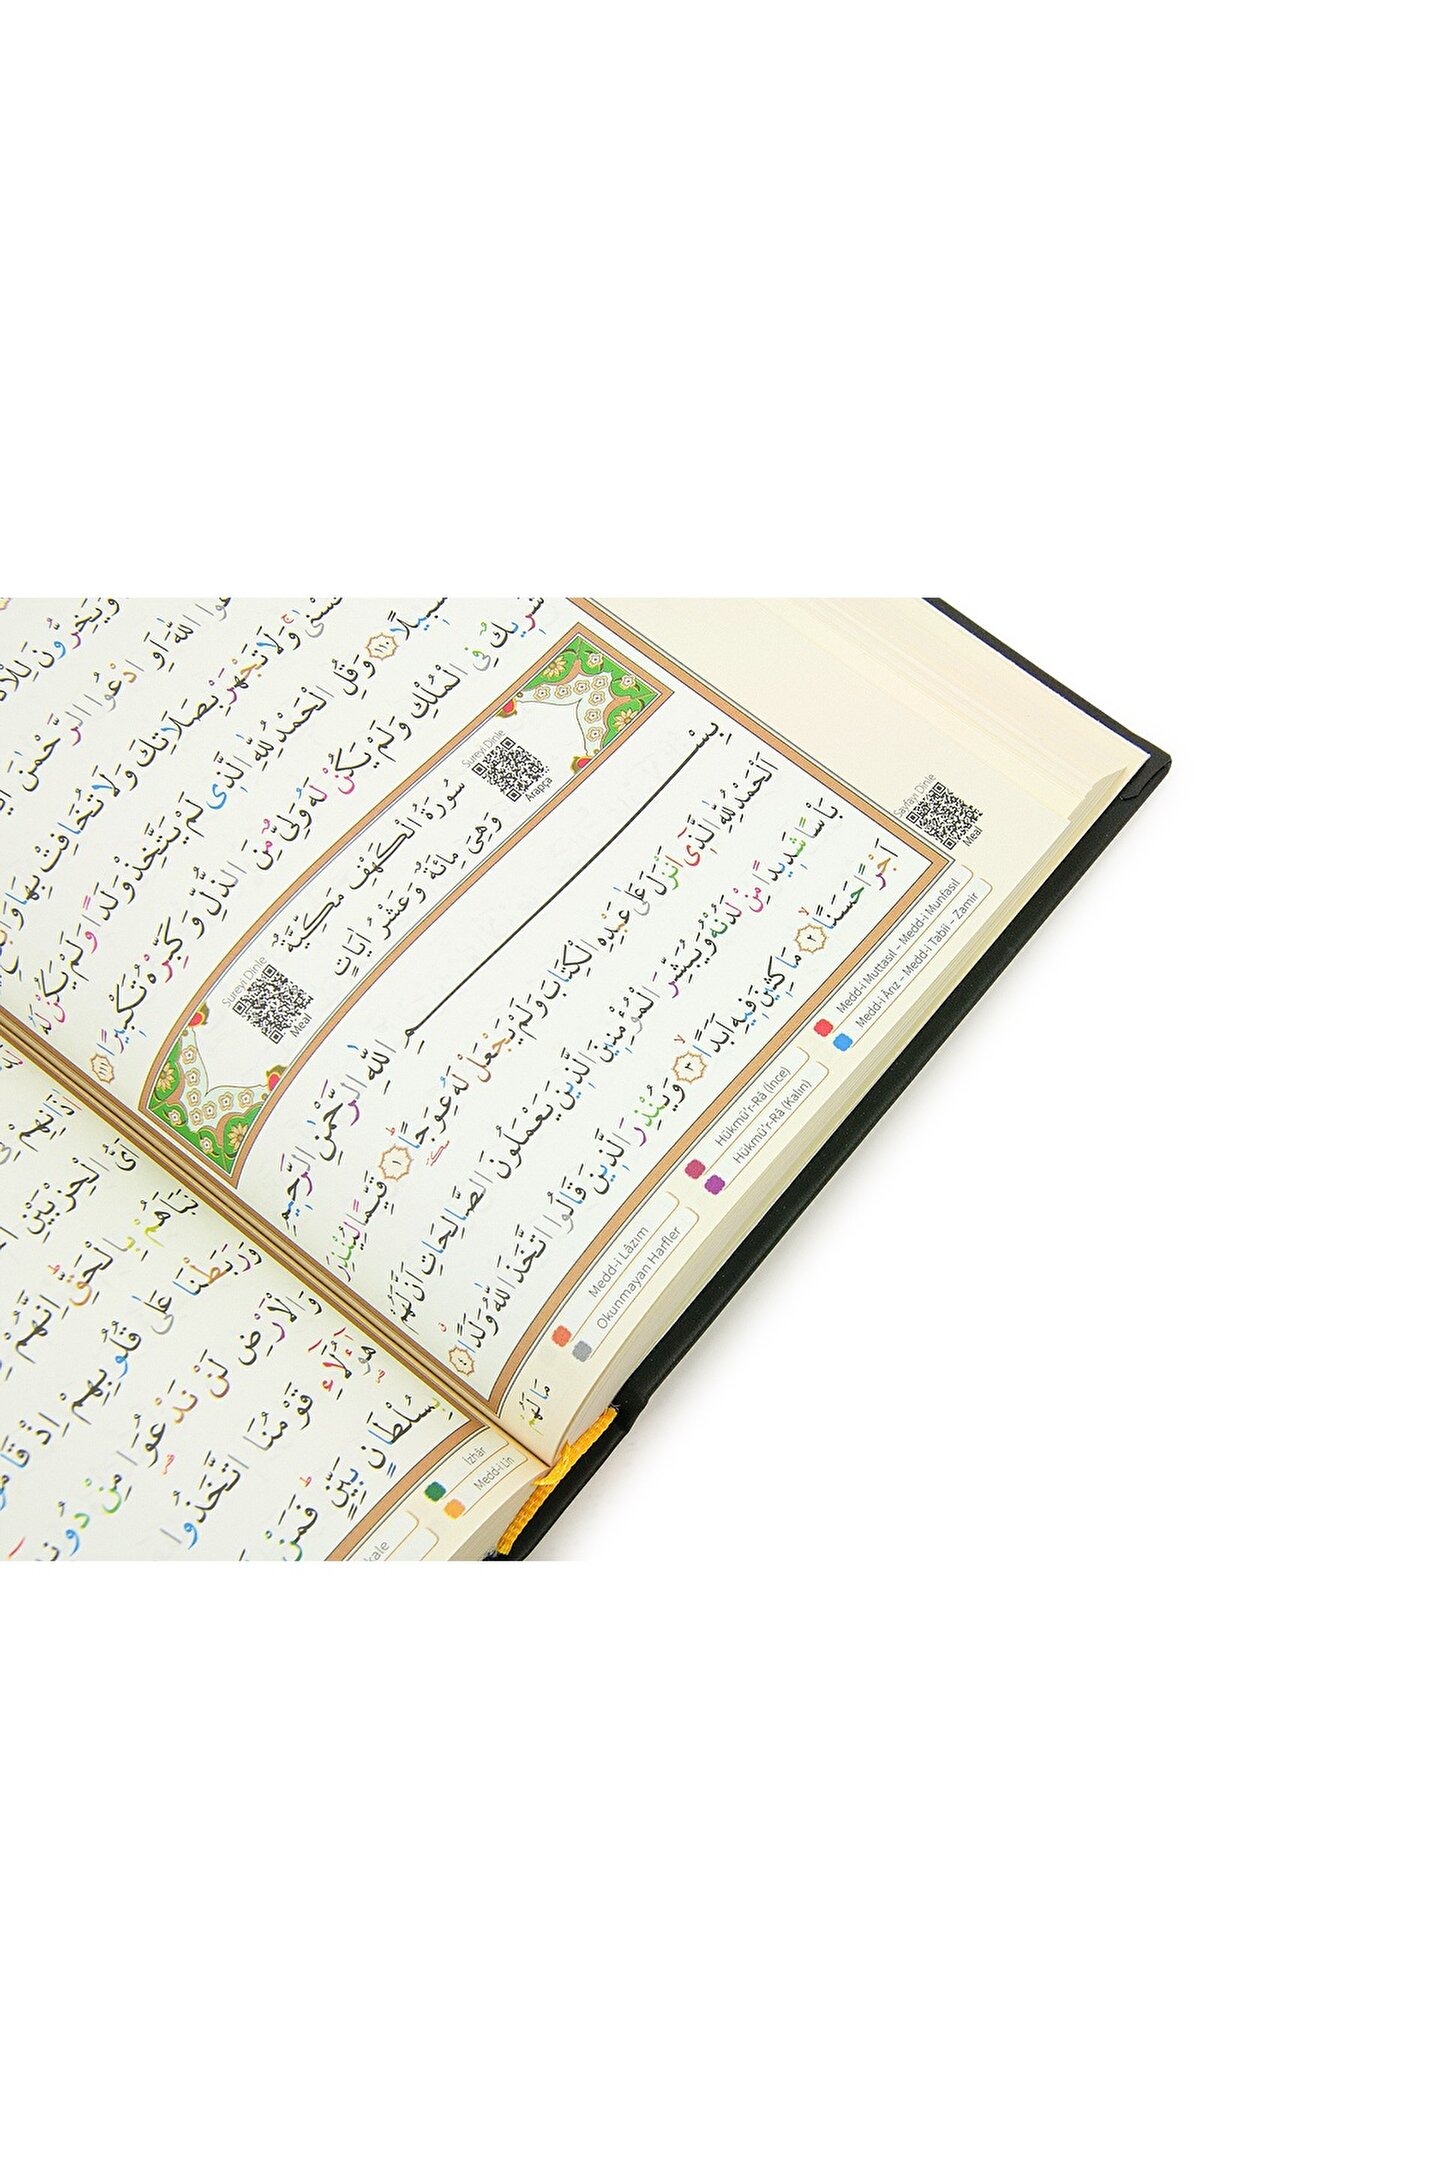 وَيَخِرُّونَ لِلْاَذْ
ادْعُوا اللّٰهَ اَوِ ادْعُوا الرَّحْمٰنَ
وَلَا تَجْهَرْ بِصَلَاتِكَ وَلَا تُخَافِتْ بِهَا وَابْتَغِ
سَب۪يلًا ﴿١١٠﴾ وَقُلِ الْحَمْدُ لِلّٰهِ الَّذ۪ى لَمْ يَتَّخِذْ وَلَدًا وَلَمْ يَكُنْ لَهُ
شَر۪يكٌ فِى الْمُلْكِ وَلَمْ يَكُنْ لَهُ وَلِىٌّ مِنَ الذُّلِّ وَكَبِّرْهُ تَكْب۪يرًا ﴿١١١﴾
Sureyi Dinle
Arapça
سُورَةُ الْكَهْفِ مَكِّيَّةٌ
وَهِىَ مِائَةٌ وَعَشْرُ اٰيَاتٍ
Sureyi Dinle
Meal
بِسْمِ اللّٰهِ الرَّحْمٰنِ الرَّح۪يمِ
اَلْحَمْدُ لِلّٰهِ الَّذ۪ٓى اَنْزَلَ عَلٰى عَبْدِهِ الْكِتَابَ وَلَمْ يَجْعَلْ لَهُ عِوَجًا ﴿١﴾ قَيِّمًا لِيُنْذِرَ
بَأْسًا شَد۪يدًا مِنْ لَدُنْهُ وَيُبَشِّرَ الْمُؤْمِن۪ينَ الَّذ۪ينَ يَعْمَلُونَ الصَّالِحَاتِ اَنَّ لَهُمْ
اَجْرًا حَسَنًا ﴿٢﴾ مَاكِث۪ينَ ف۪يهِ اَبَدًا ﴿٣﴾ وَيُنْذِرَ الَّذ۪ينَ قَالُوا اتَّخَذَ اللّٰهُ وَلَدًا ﴿٤﴾
مَا لَهُمْ
Sayfayı Dinle
Meal
Medd-i Muttasıl – Medd-i Munfasıl
Medd-i Ârız – Medd-i Tabii – Zamir
Hükmü'r-Râ (İnce)
Hükmü'r-Râ (Kalın)
Medd-i Lâzım
Okunmayan Harfler
اَىُّ الْحِزْبَيْنِ
نَبَاَهُمْ بِالْحَقِّ اِنَّهُمْ
وَرَبَطْنَا عَلٰى قُلُوبِهِمْ اِذْ قَامُوا
وَالْاَرْضِ لَنْ نَدْعُوَا مِنْ دُونِه۪
هٰٓؤُ۬لَٓاءِ قَوْمُنَا اتَّخَذُوا
بِسُلْطَانٍ بَيِّنٍ فَمَنْ
İzhâr
Medd-i Lîn
kale